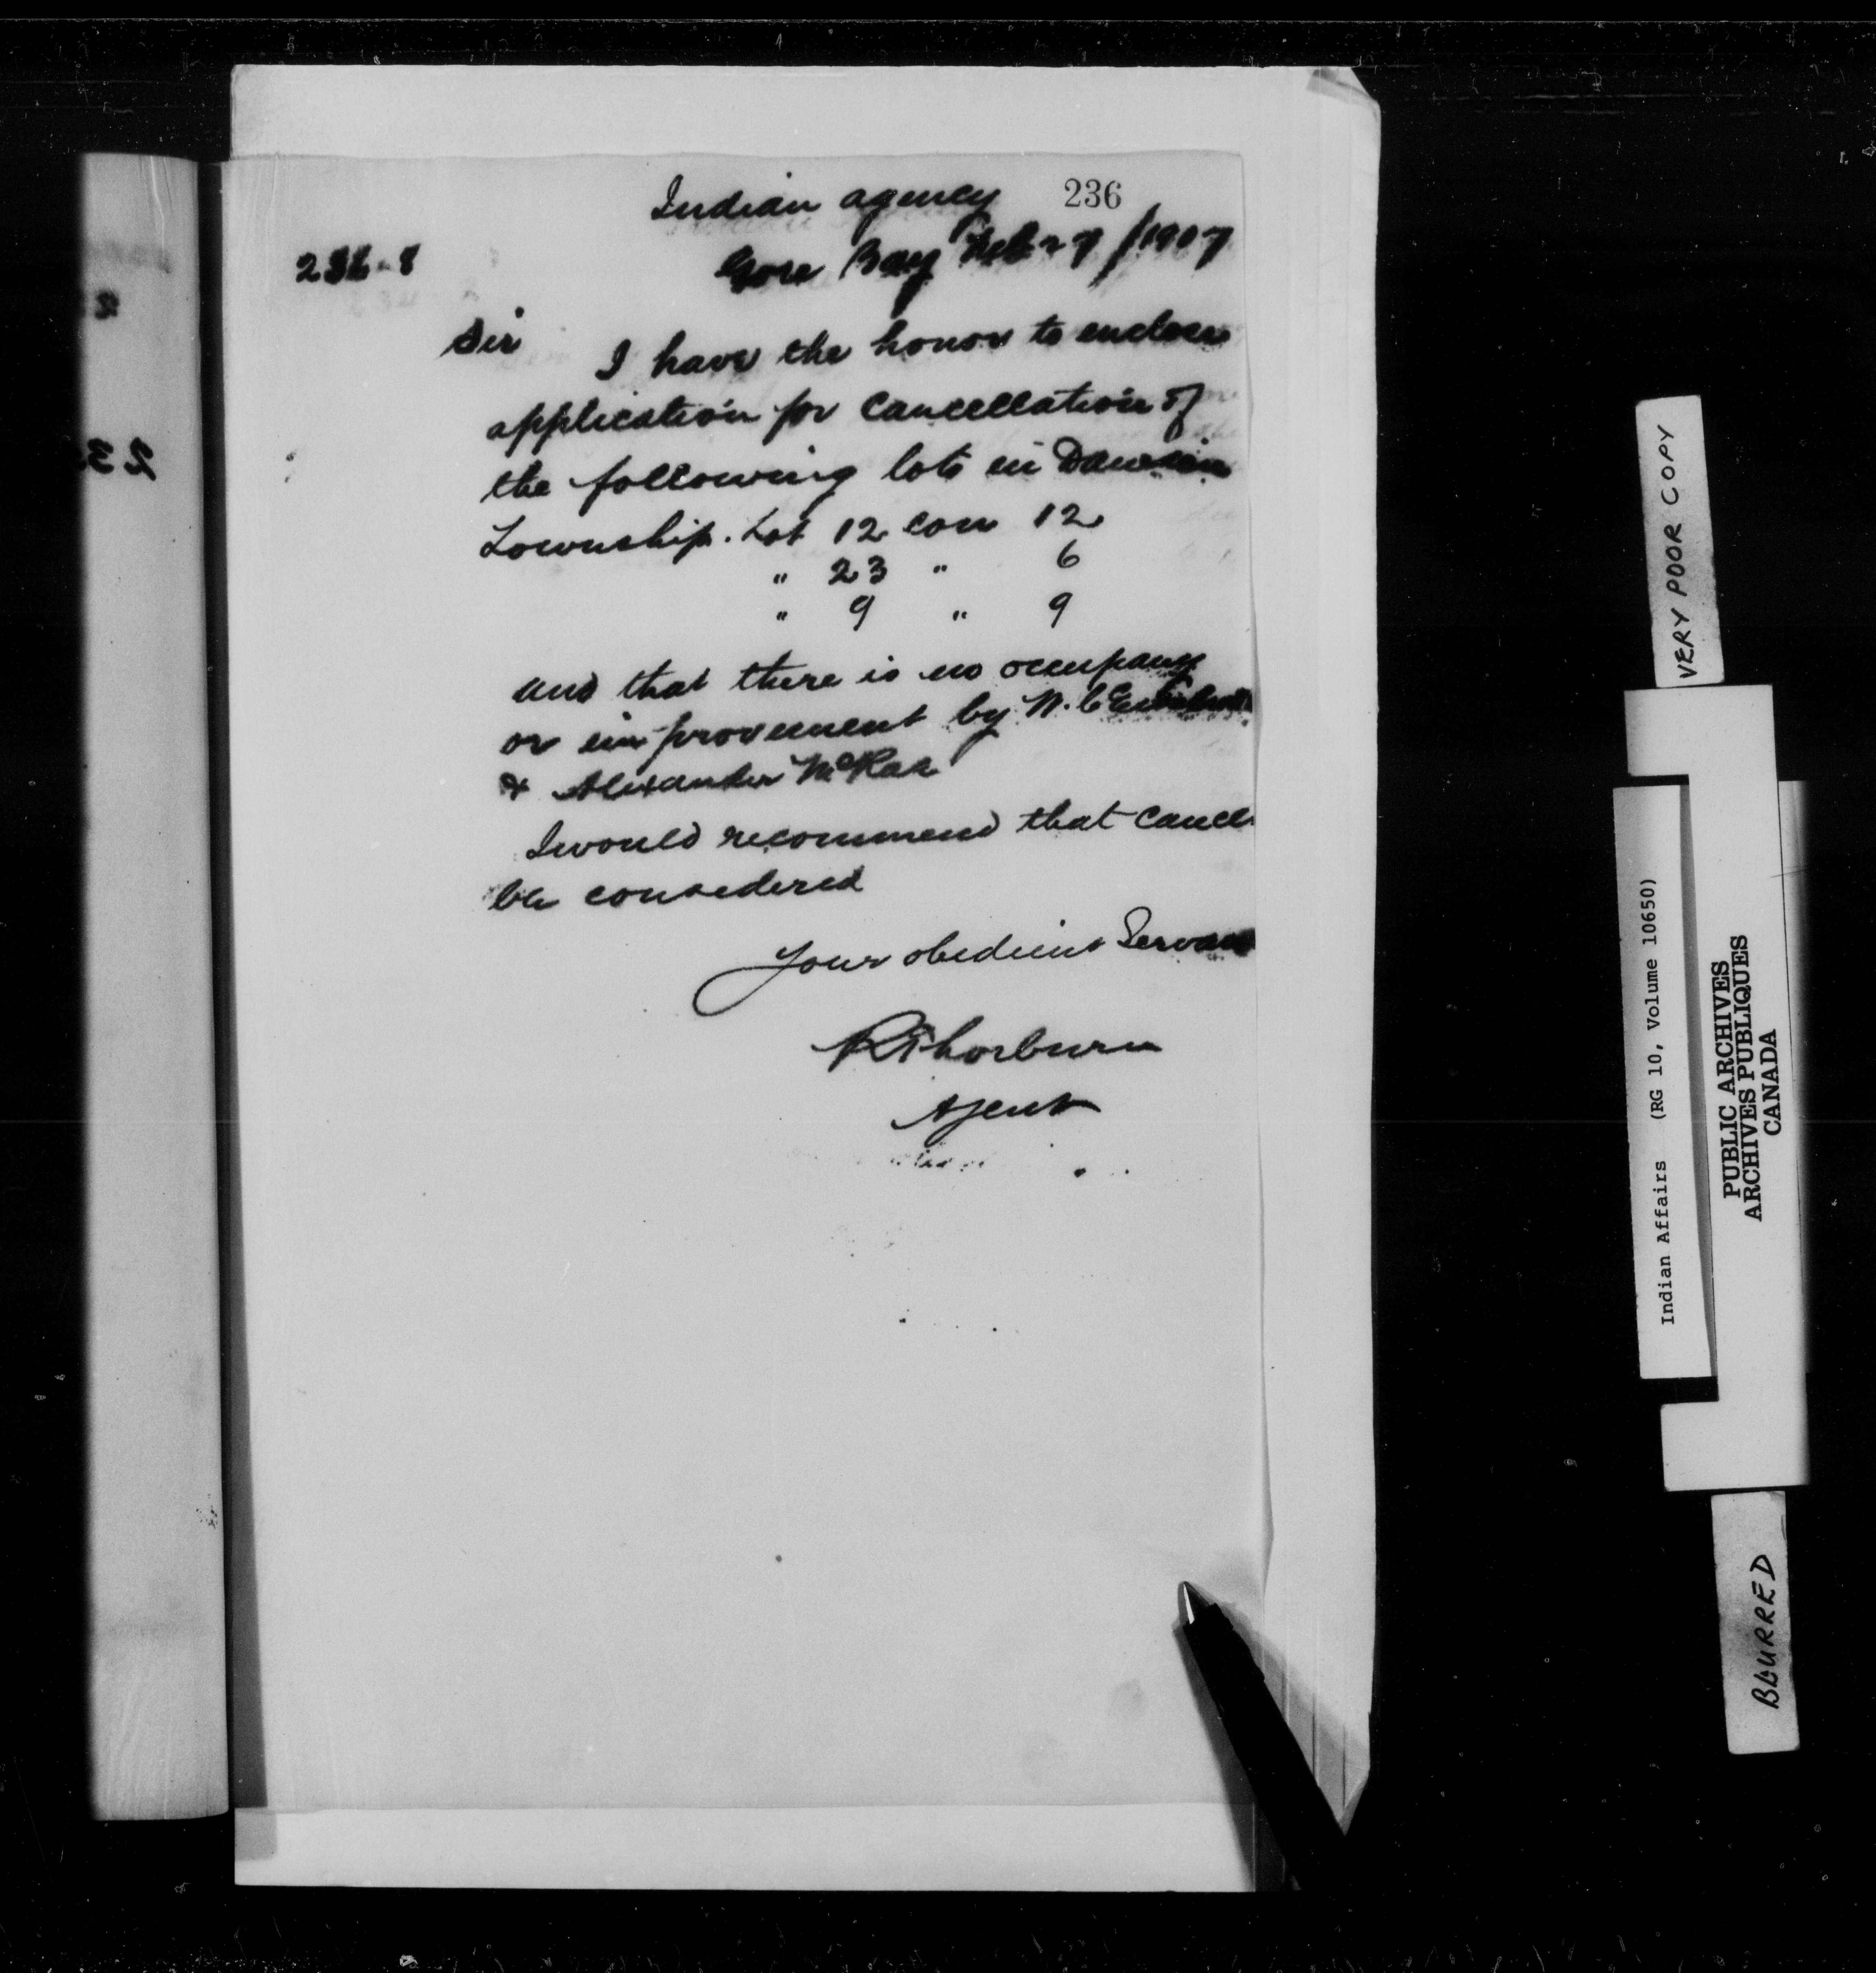 Indian agency 236
236-8 Gore Bay Feb 27/1907
Sir
I have the honor to enclose
application for Cancellation of
the following lots in Dawson
Township. Lot 12 Con 12
" 23 " 6
" 9 " 9
and that there is no occupancy
or improvement by
& Alexander McRae
I would recommend that Cancel
be considered
Your obedient Servant
R Thorburn
Agent
VERY POOR COPY
Indian Affairs (RG 10, Volume 10650)
PUBLIC ARCHIVES
ARCHIVES PUBLIQUES
CANADA
BLURRED